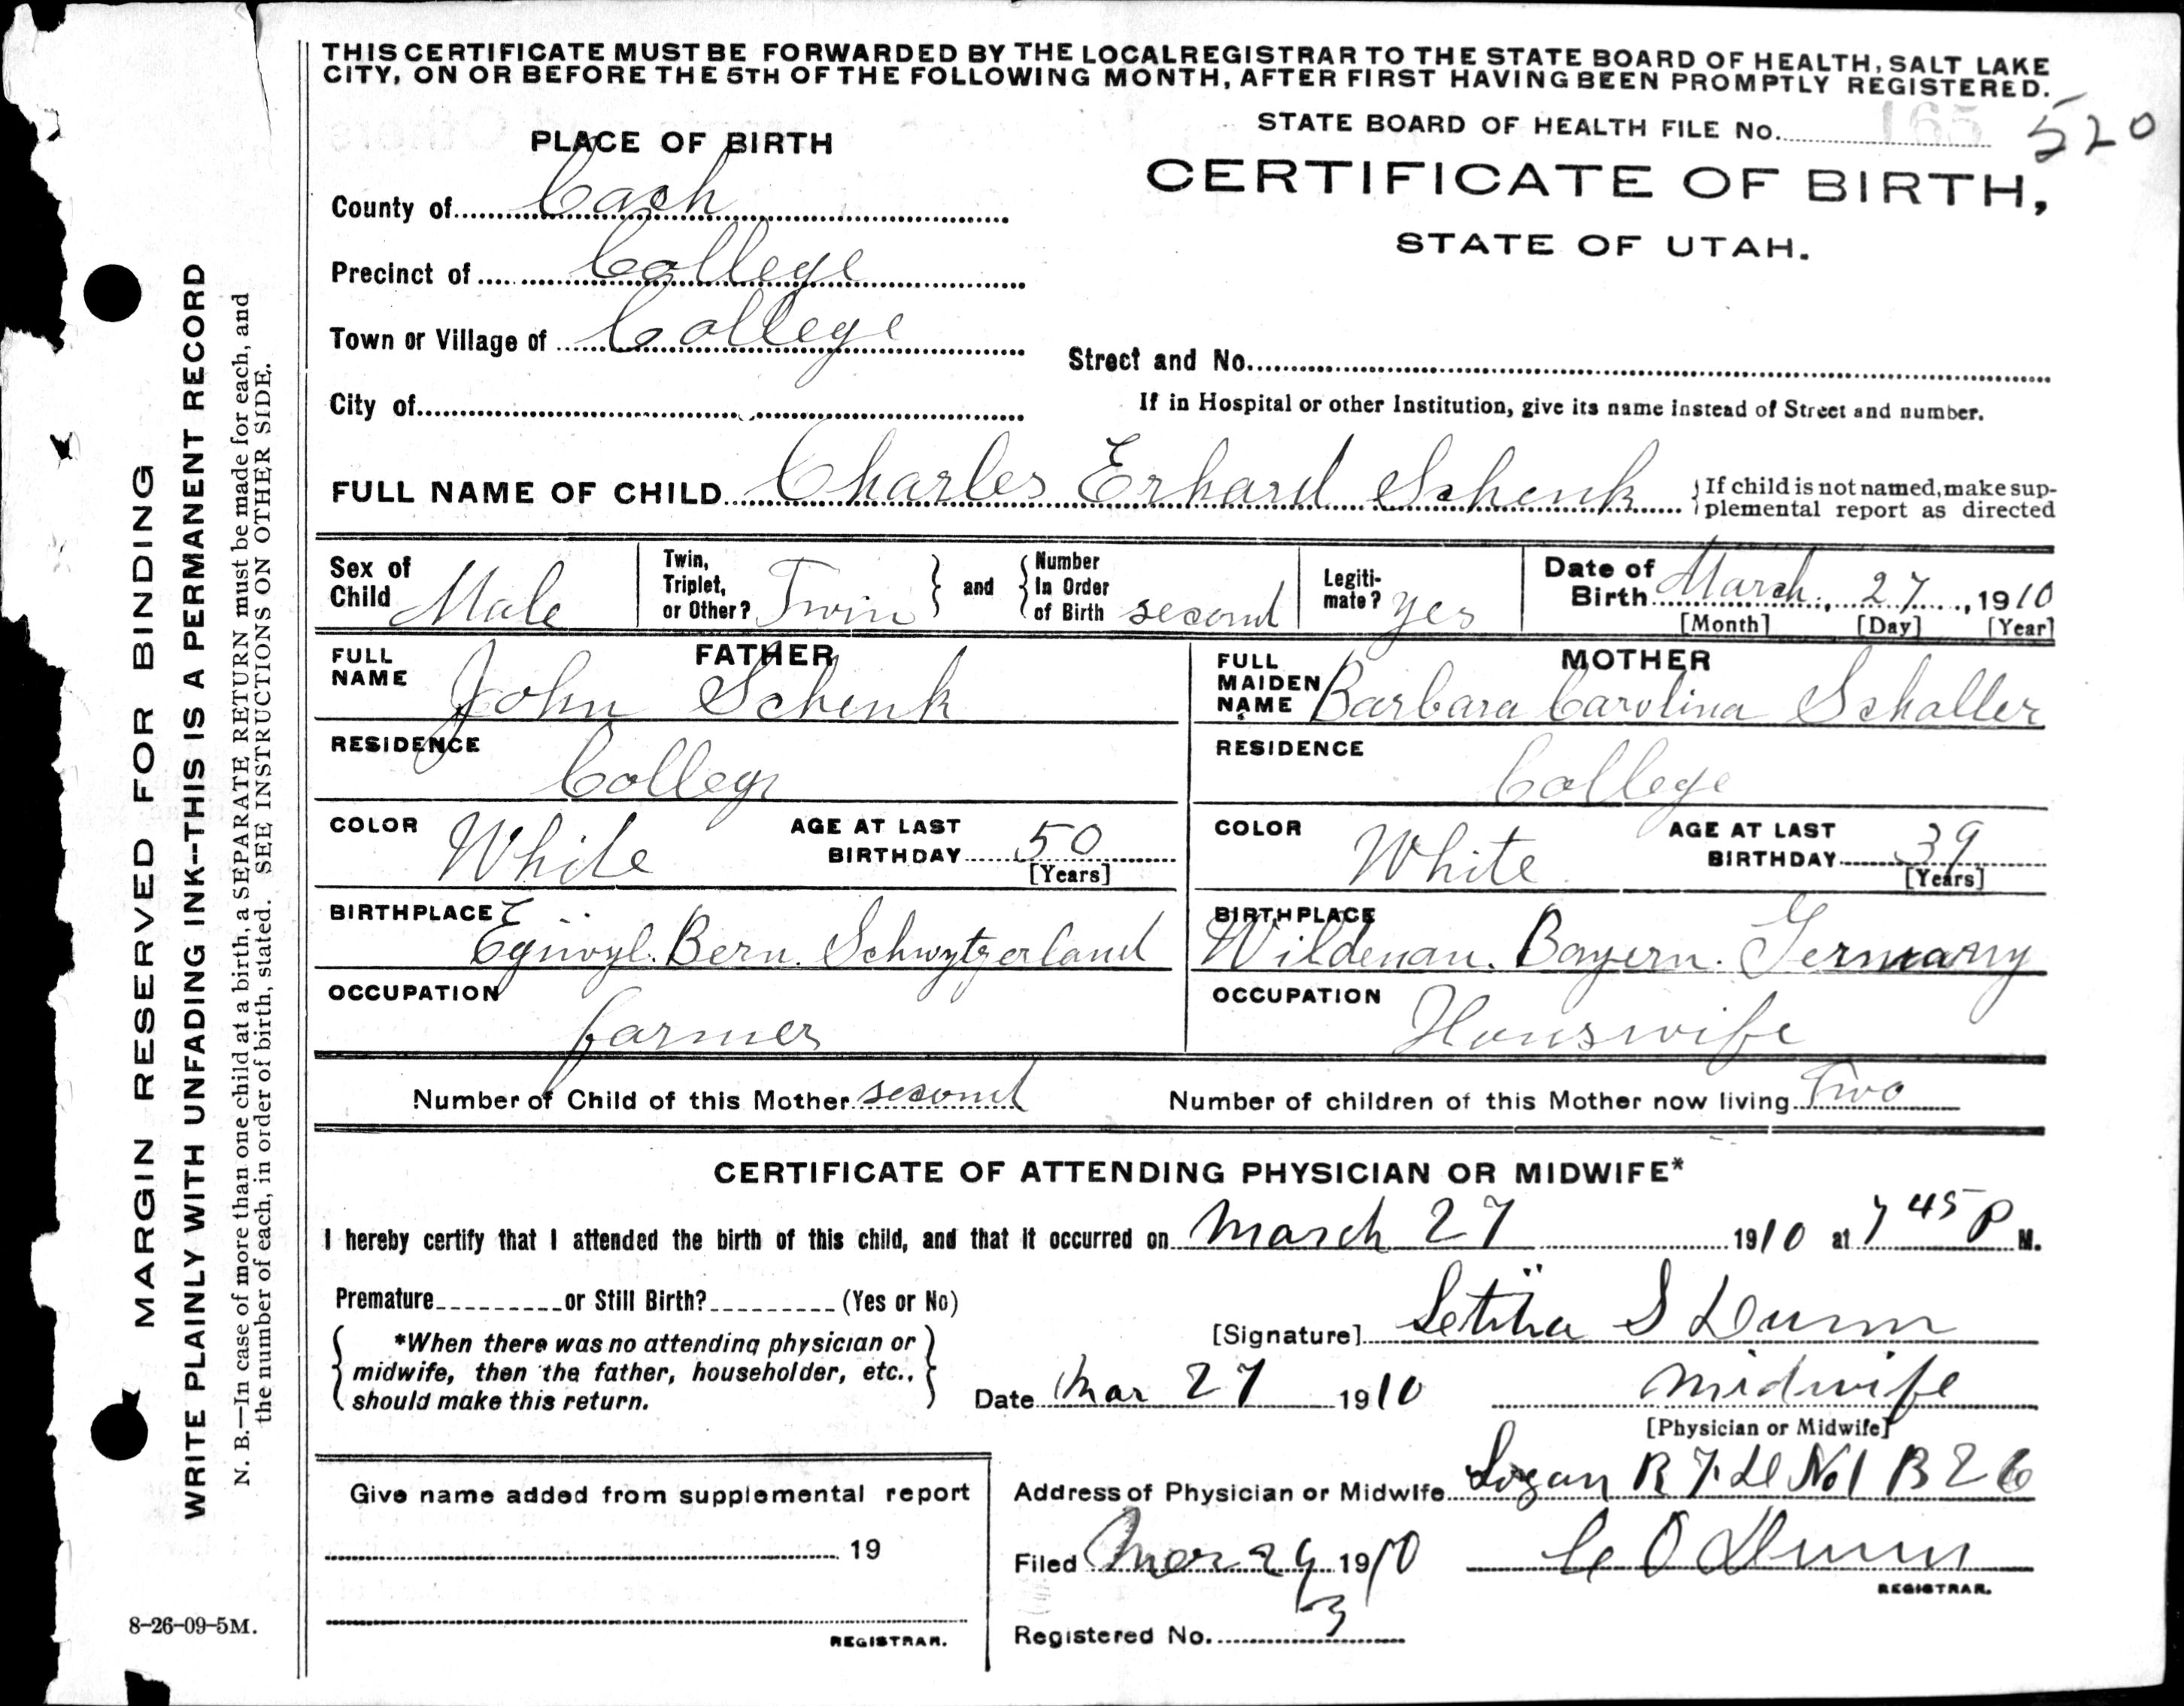 THIS CERTIFICATE MUST BE FORWARDED BY THE LOCAL REGISTRAR TO THE STATE BOARD OF HEALTH, SALT LAKE
CITY, ON OR BEFORE THE 5TH OF THE FOLLOWING MONTH, AFTER FIRST HAVING BEEN PROMPTLY REGISTERED.
STATE BOARD OF HEALTH FILE No. 165 520
PLACE OF BIRTH
CERTIFICATE OF BIRTH,
STATE OF UTAH.
County of Cach
Precinct of College
Town or Village of College
Street and No.
City of
If in Hospital or other Institution, give its name instead of Street and number.
FULL NAME OF CHILD Charles Erhard Schenk
If child is not named, make sup-
plemental report as directed
Sex of Child Male
Twin, Triplet, or Other? Twin and Number In Order of Birth second
Legiti-mate? yes
Date of Birth March, 27, 1910
[Month] [Day] [Year]
FATHER
FULL NAME John Schenk
RESIDENCE College
COLOR White
AGE AT LAST BIRTHDAY 50
[Years]
BIRTHPLACE
Bern. Schwytzerland
OCCUPATION
farmer
MOTHER
FULL MAIDEN NAME Barbara Carolina Schaller
RESIDENCE
College
COLOR White
AGE AT LAST BIRTHDAY 39
[Years]
BIRTHPLACE
Wildenau. Bayern. Germany
OCCUPATION
Houswife
Number of Child of this Mother second
Number of children of this Mother now living Two
CERTIFICATE OF ATTENDING PHYSICIAN OR MIDWIFE*
I hereby certify that I attended the birth of this child, and that it occurred on March 27 1910 at 7 45 P M.
Premature or Still Birth? (Yes or No)
*When there was no attending physician or
midwife, then the father, householder, etc.,
should make this return.
[Signature] Letitia S Dunn
Date Mar 27 1910
midwife
[Physician or Midwife]
Give name added from supplemental report
19
REGISTRAR.
Address of Physician or Midwife Logan R F D No 1 B 26
Filed Mar 29 1910
C O Dunn
REGISTRAR.
Registered No. 3
MARGIN RESERVED FOR BINDING
WRITE PLAINLY WITH UNFADING INK--THIS IS A PERMANENT RECORD
N. B.—In case of more than one child at a birth, a SEPARATE RETURN must be made for each, and
the number of each, in order of birth, stated. SEE INSTRUCTIONS ON OTHER SIDE.
8-26-09-5M.